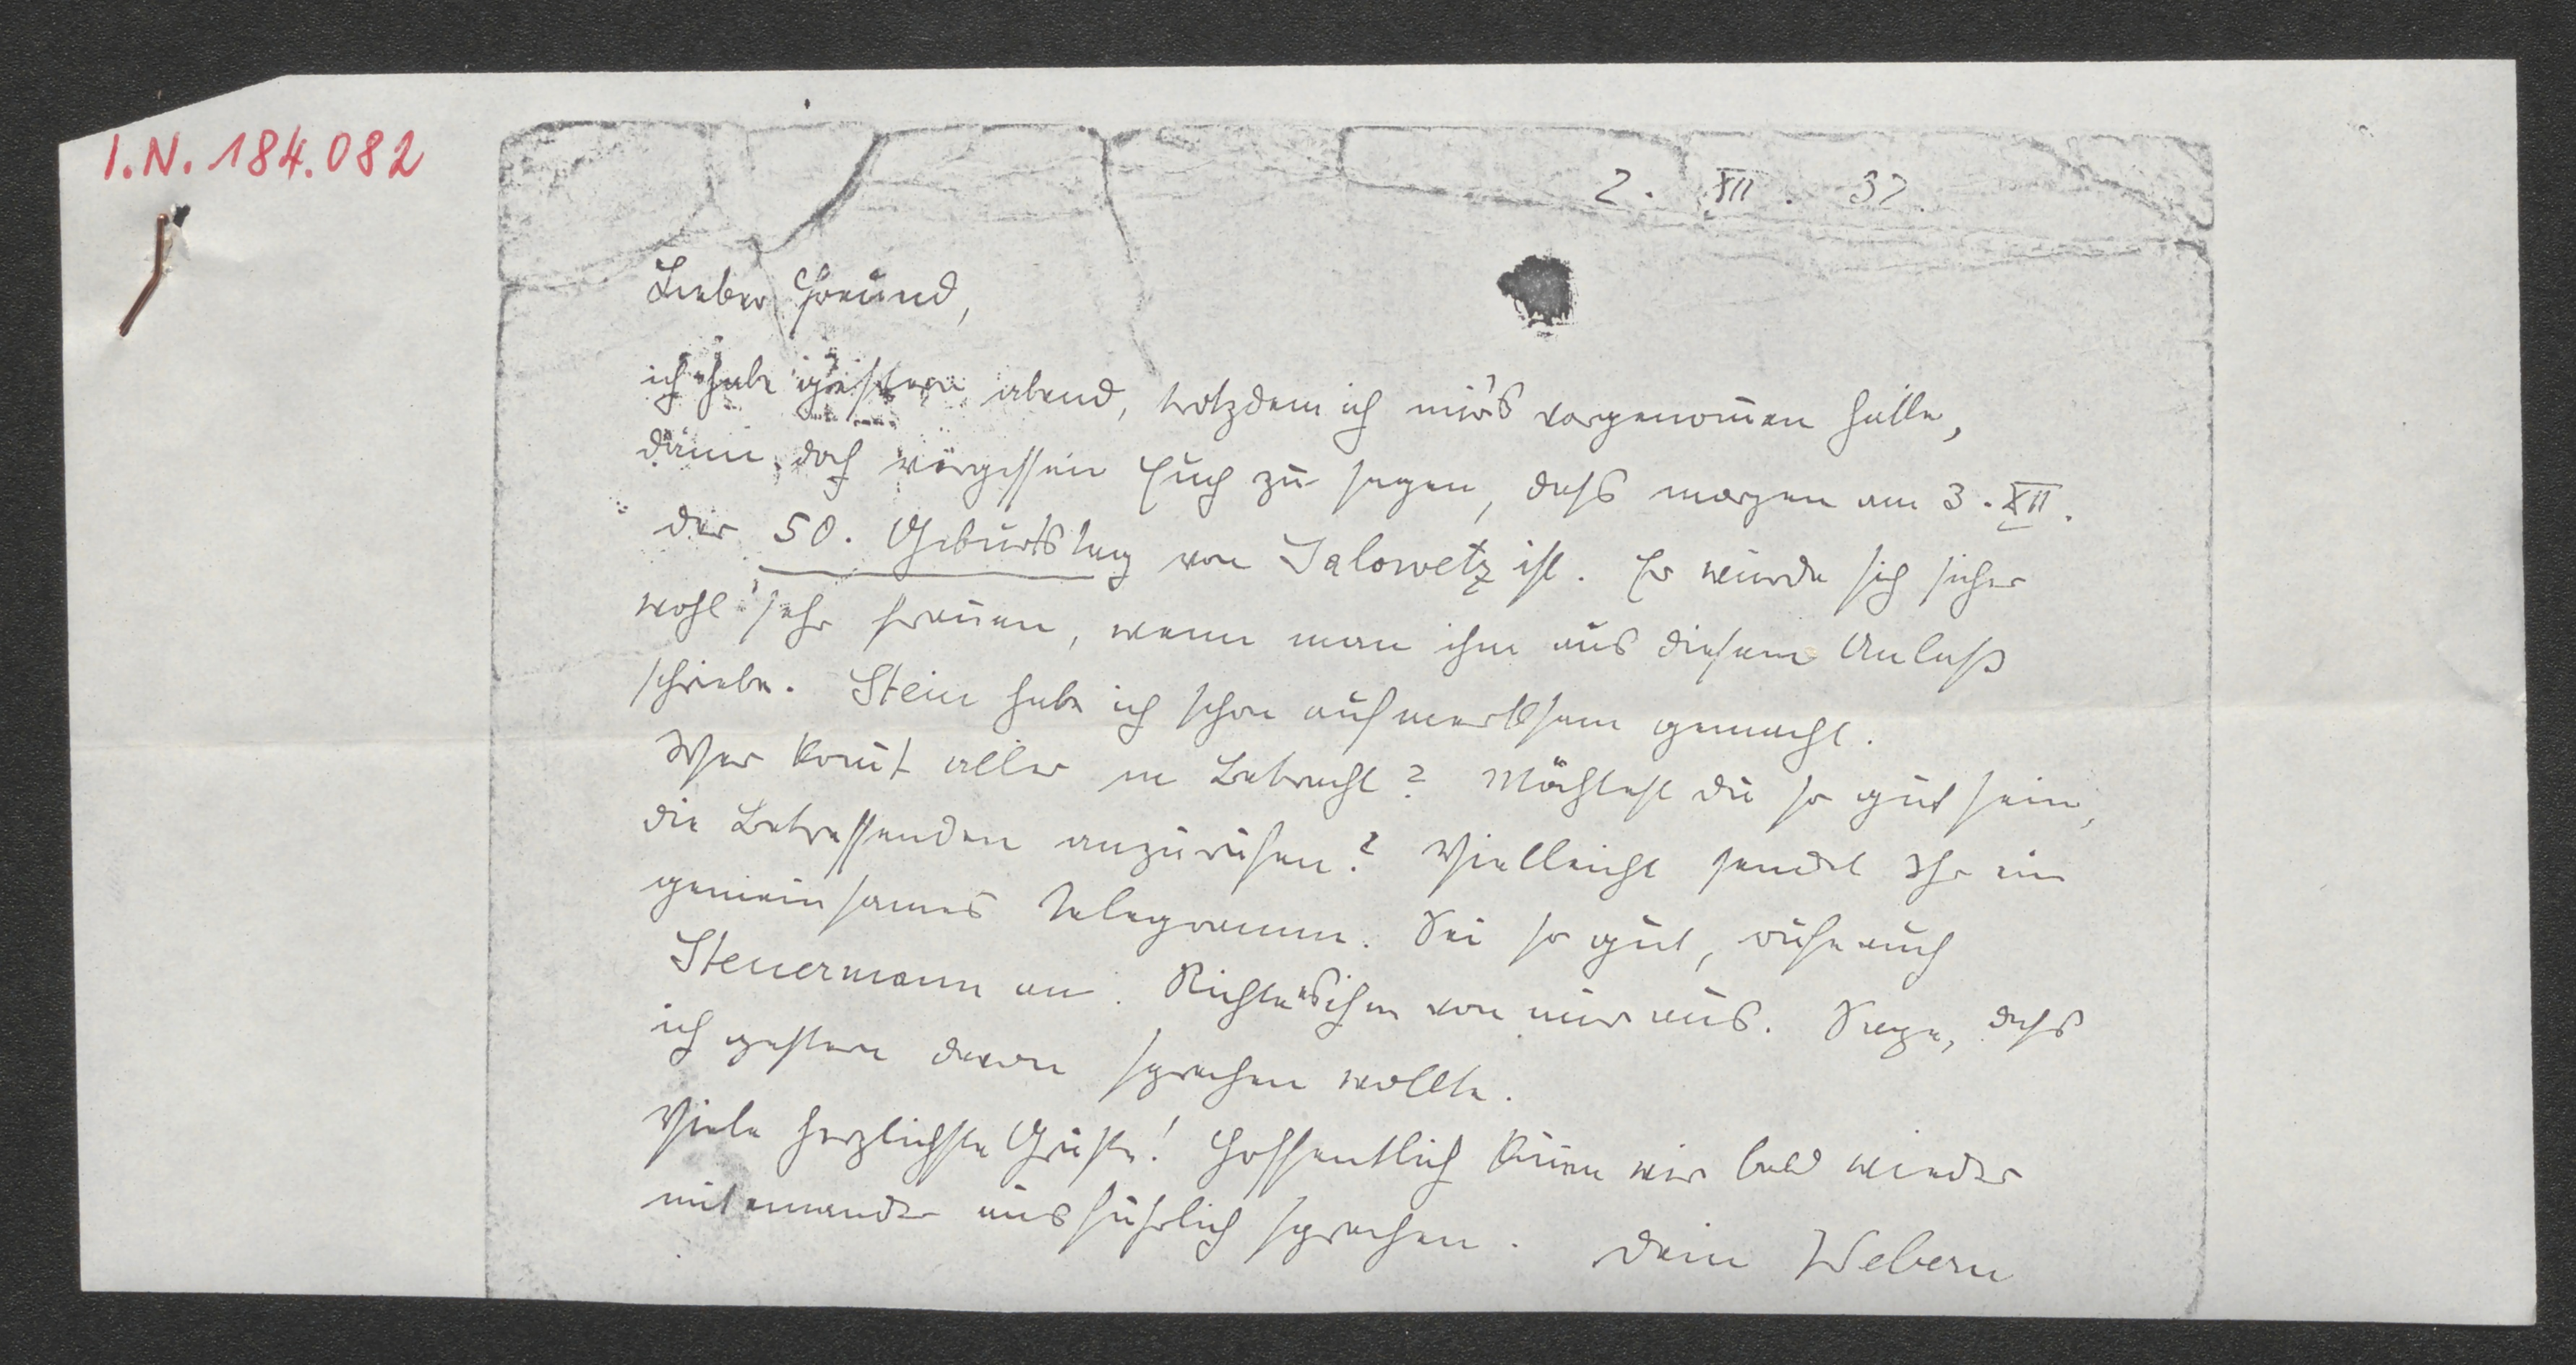 I.N. 184.082
2. XII. 32.
Lieber Freund,
ich habe gestern abend, trotzdem ich mir's vorgenom̄en hatte,
dann doch vergessen Euch zu sagen, dass morgen am 3. XII.
der 50. Geburtstag von Jalowetz ist. Er würde sich sicher
wohl sehr freuen, wenn man ihm aus diesem Anlaß
schriebe. Stein habe ich schon aufmerksam gemacht.
Wer kom̄t aller in Betracht? Möchtest du so gut sein,
die Betreffenden anzurufen? Vielleicht sendet Ihr ein
gemeinsames Telegramm. Sei so gut, rufe auch
Steuermann an. Richte es ihm von mir aus. Sage, dass
ich gestern davon sprechen wollte.
Viele herzlichste Grüße! Hoffentlich kön̄en wir bald wieder
miteinander ausführlich sprechen. Dein Webern